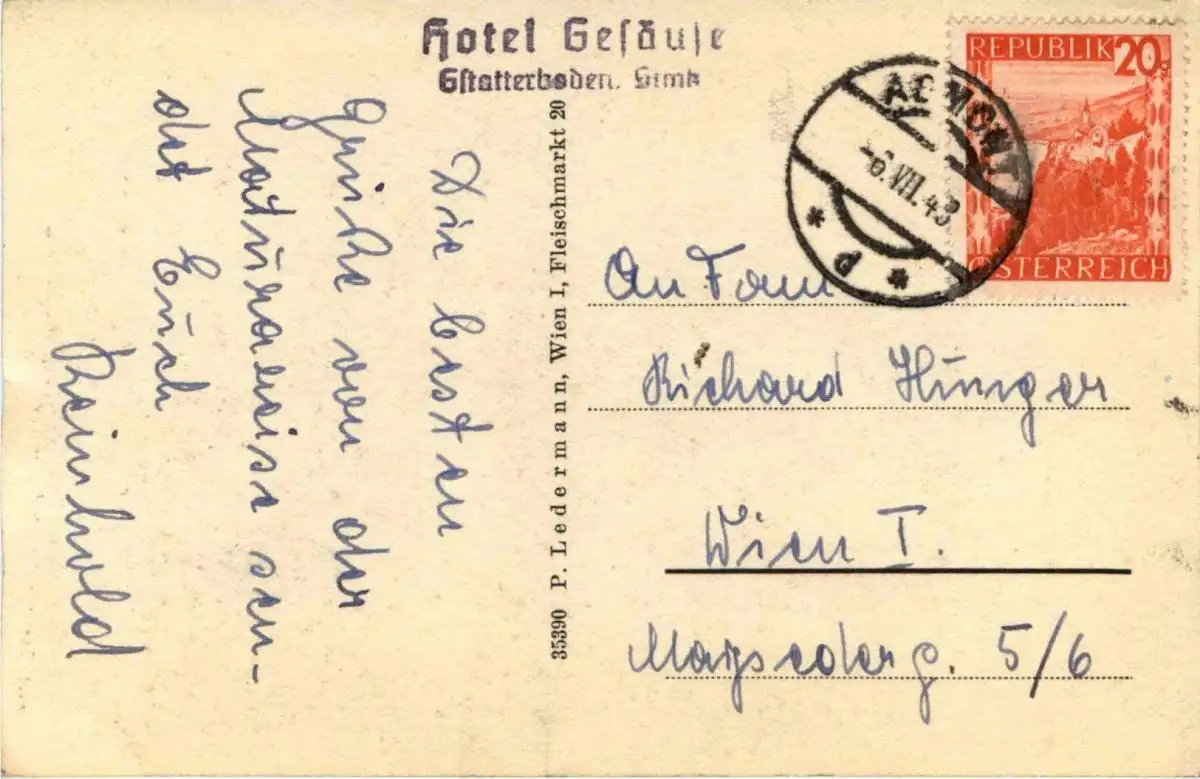 Hotel Gesäuse
Gstatterboden, Stmk
Die besten
Grüße von der
Maturareise sen-
det Euch
Reinhold
35390 P. Ledermann, Wien I, Fleischmarkt 20
REPUBLIK 20g
ÖSTERREICH
ADMONT
-6.VII.43
* P *
An Fam
Richard Hunger
Wien I.
Maysederg. 5/6